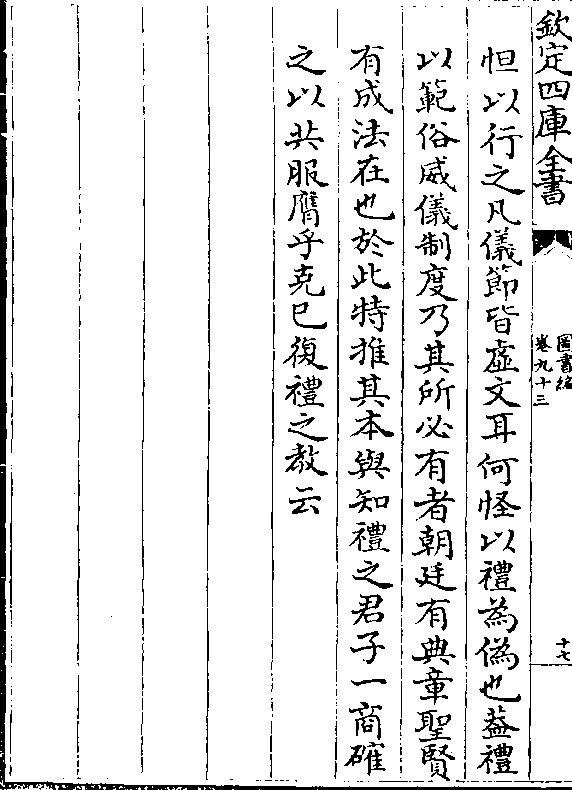 欽定四庫全書
圖書編
卷九十三
十七
怛以行之凡儀節皆虛文耳何怪以禮為偽也葢禮
以範俗威儀制度乃其所必有者朝廷有典章聖賢
有成法在也於此特推其本與知禮之君子一商確
之以共服膺乎克已復禮之教云